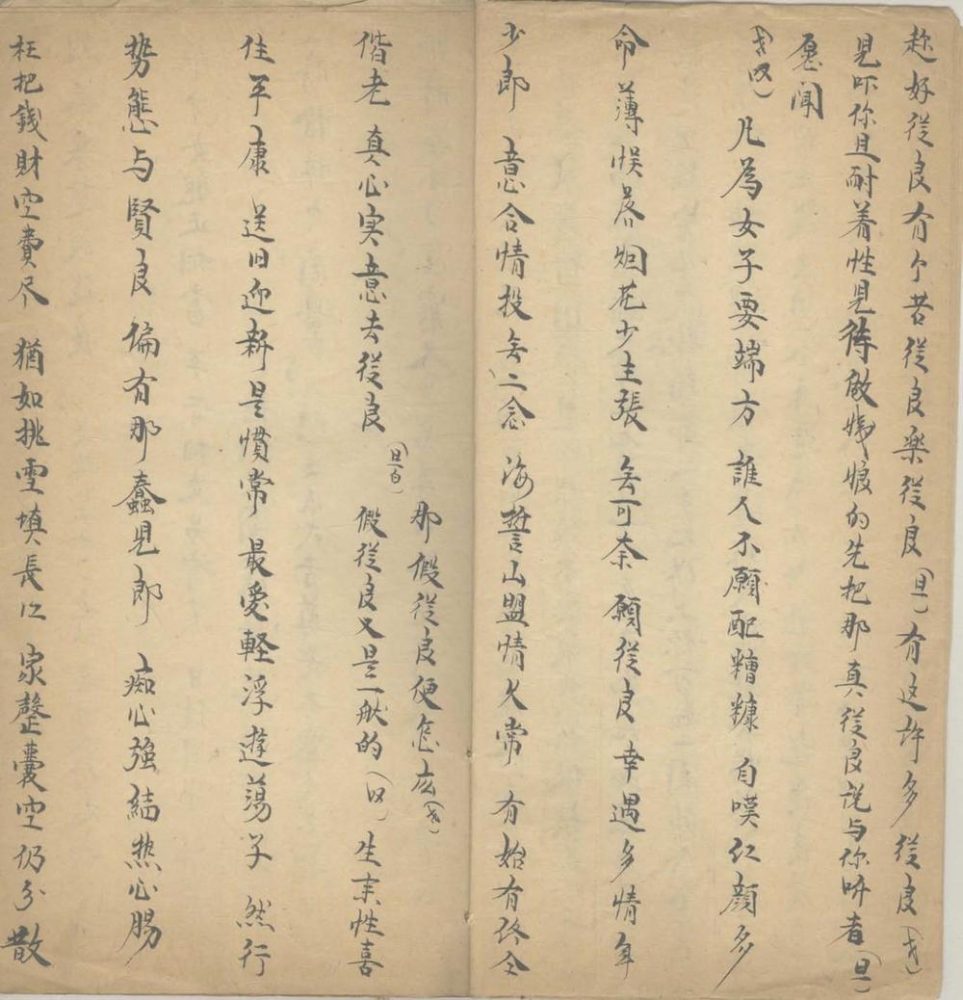 趂好從良有个苦從良楽從良(旦)有这許多從良(彡)
見吓你且耐着性児待做娘的先把那真從良説与你听者(旦)
愿闻
(唱)凡為女子要端方 誰人不願配糟糠 自嘆仁顔多
命薄悮落烟花少主張 無可奈願從良 幸遇多情年
少郎 意合情投無二念 海誓山盟情久常 有始有终仝
偕老 真心实意去從良
(旦白)那假從良便怎広
假從良又是一般的(唱)生来性喜
住平康 送旧迎新是慣常 最愛軽浮遊蕩子 然行
势態与賢良 偏有那蠢児郎 痴心強結热心腸
枉把銭財空費尽 猶如挑雪填長江 家整囊空仍分散